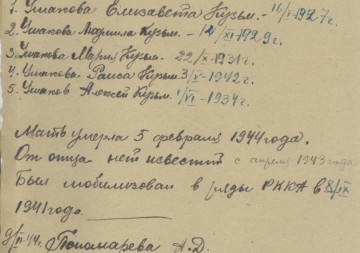 1. Ушакова Елизавета Кузьм. - 16/I-1927г.
2. Ушакова Людмила Кузьм. - 14/XI-1929г.
3. Ушакова Мария Кузьм. 22/X-1931г.
4. Ушакова Раиса Кузьм. 3/X-1942г.
5. Ушаков Алексей Кузьм. 1/VI-1934г.
Мать умерла 5 февраля 1944 года.
От отца нет известий с апреля 1943 года
Был мобилизован в ряды РККА в 8/IX
1941 года.
Пономарева А.Д.